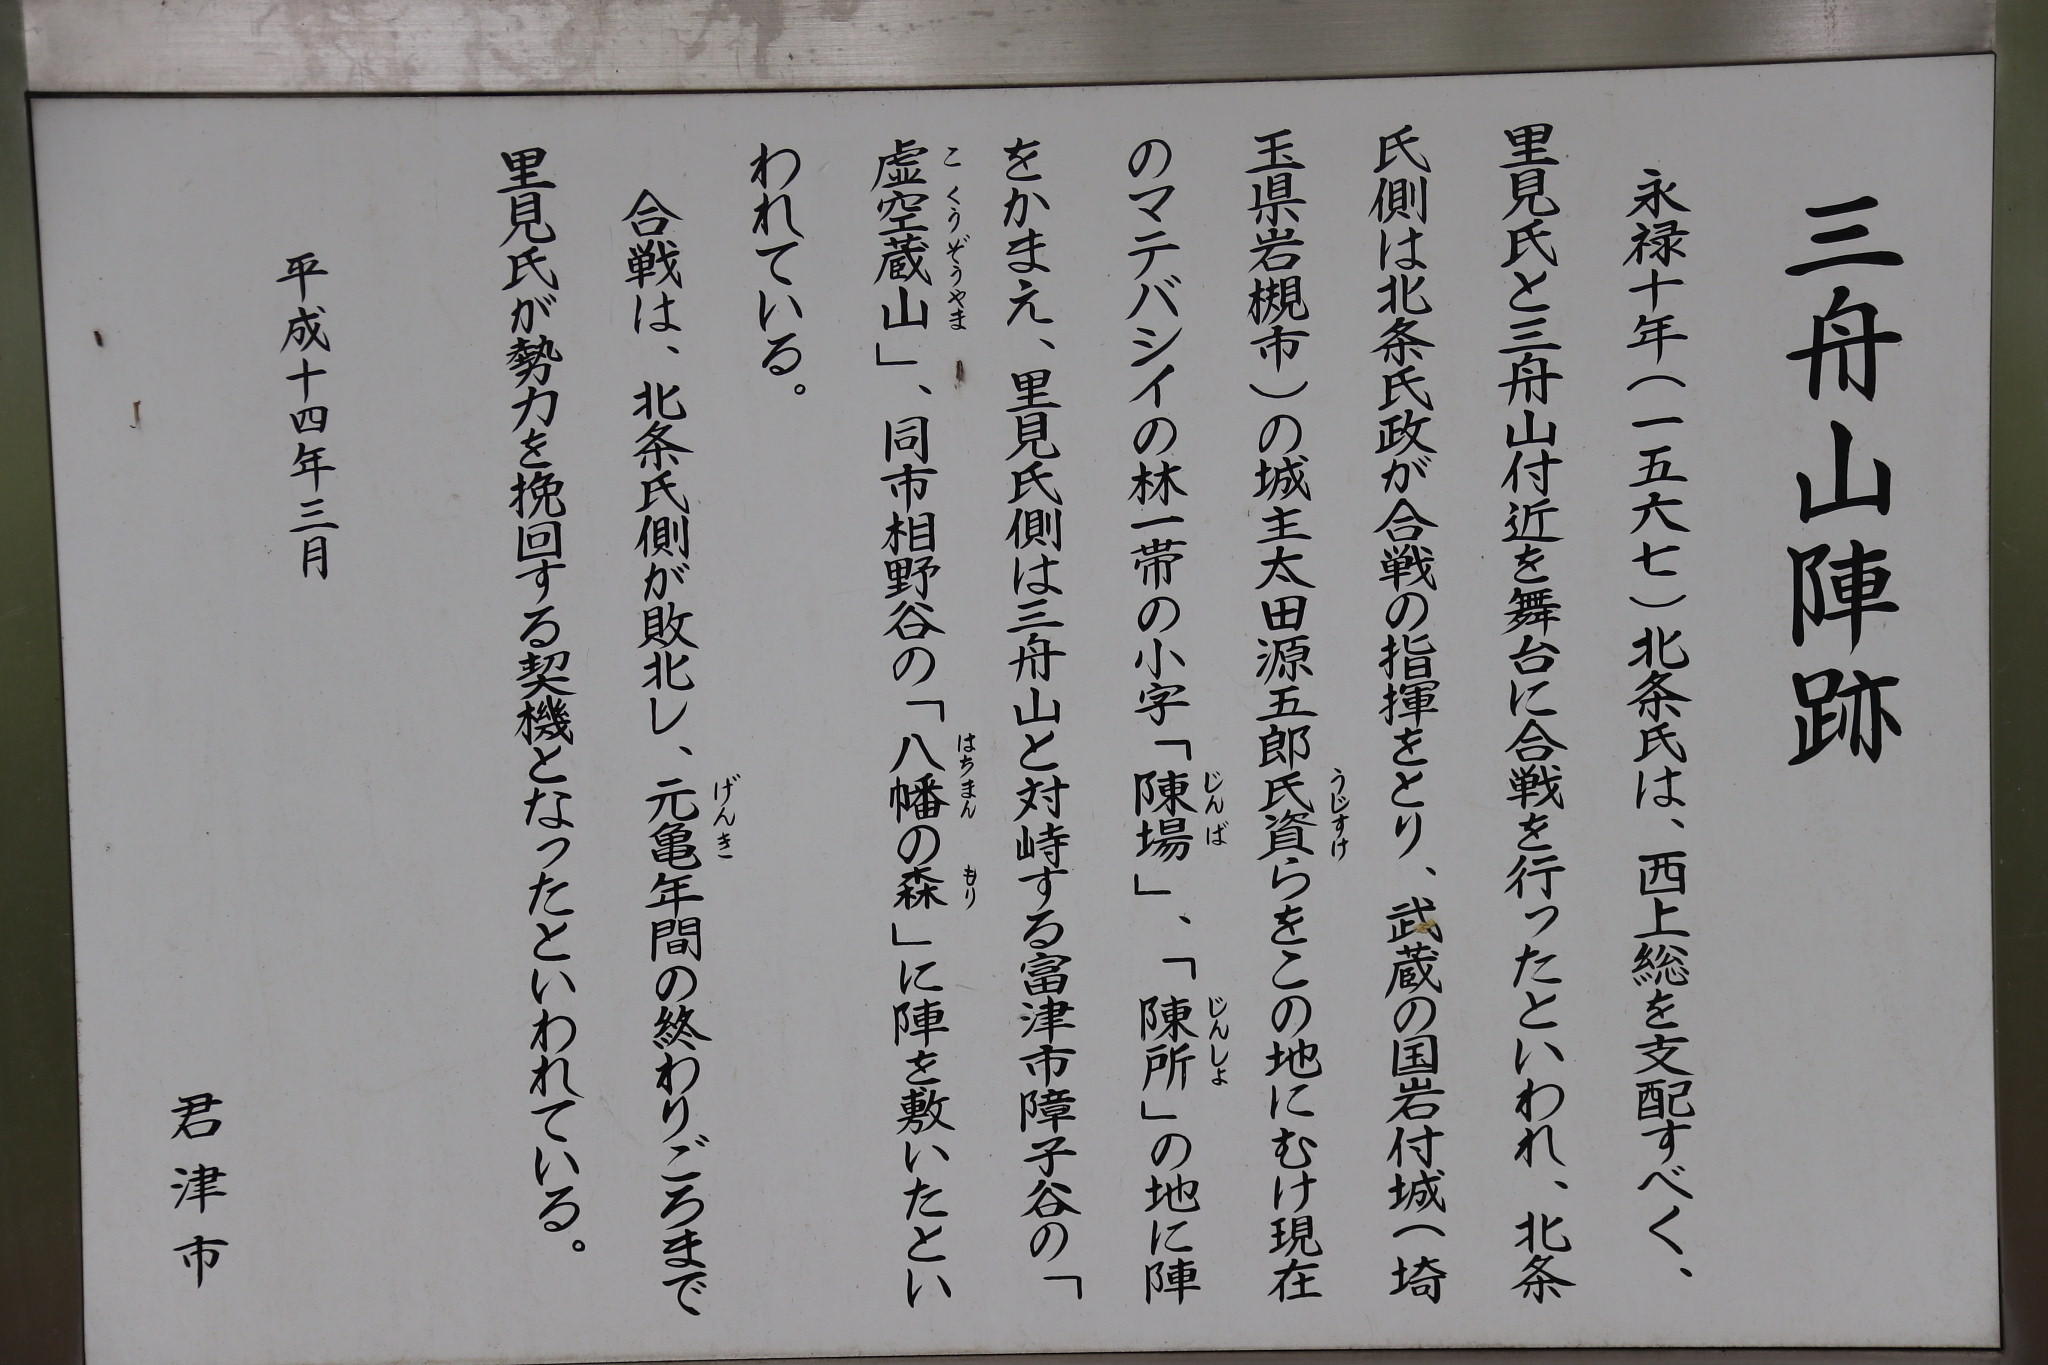 三舟山陣跡
永禄十年（一五六七）北条氏は、西上総を支配すべく、
里見氏と三舟山付近を舞台に合戦を行ったといわれ、北条
氏側は北条氏政が合戦の指揮をとり、武蔵の国岩付城（埼
玉県岩槻市）の城主太田源五郎氏資らをこの地にむけ現在
うじすけ
のマテバシイの林一帯の小字「陳場」、「陳所」の地に陣
じんば
じんしょ
をかまえ、里見氏側は三舟山と対峙する富津市障子谷の「
虚空蔵山」、同市相野谷の「八幡の森」に陣を敷いたとい
こくうぞうやま
はちまん
もり
われている。
合戦は、北条氏側が敗北し、元亀年間の終わりごろまで
げんき
里見氏が勢力を挽回する契機となったといわれている。
平成十四年三月
君津市